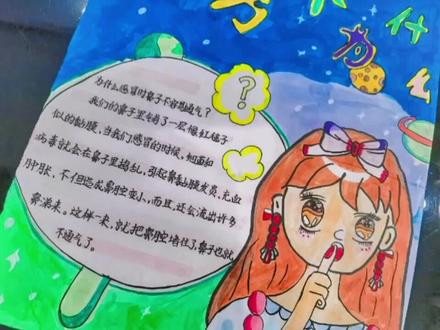 什
为
么
?
为什么感冒时鼻子不容易通气?
我们的鼻子里铺了一层像红毯子
似的黏膜,当我们感冒的时候,细菌和
病毒就会在鼻子里捣乱,引起鼻黏膜发炎、充血
肿胀,不但造成鼻腔变小,而且,还会流出许多
鼻涕来。这样一来,就把鼻腔堵住了鼻子也就
不通气了。